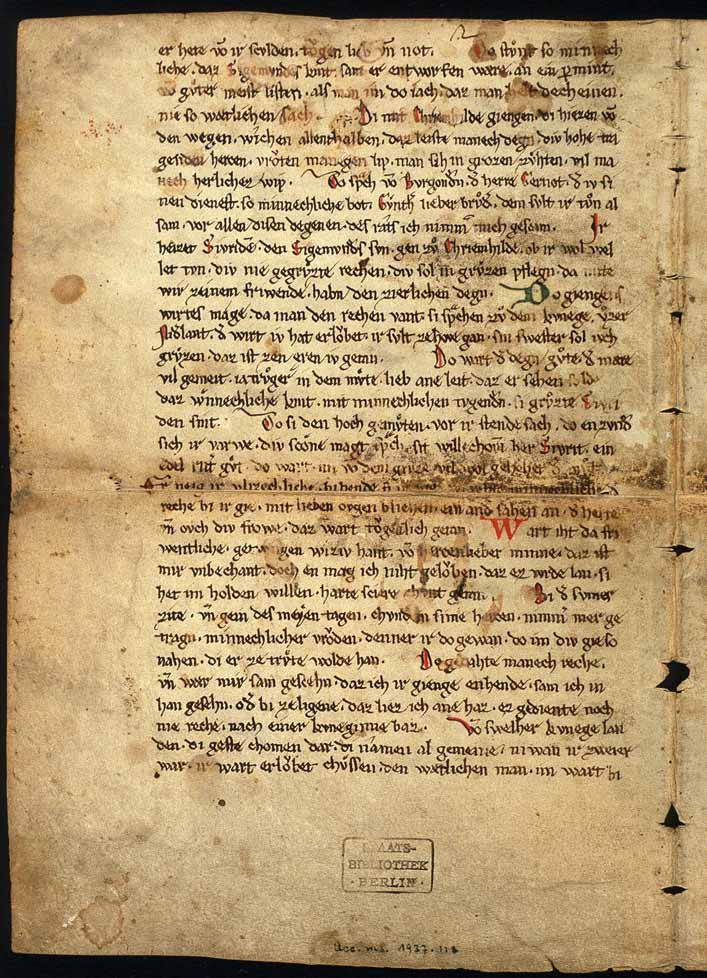 er here vō ir scvlden. tǒgen lieb vn̄ not. Do stvͦnt so minnech
liche. daz Sigemvndes kint. sam er entworfen ware. an ein pᵉmint.
vō gvͦter meist listen. als man im do iach. daz man helt decheinen.
nie so wætlichen sach. Di mit Chriemhilde giengen. di hiezen vō
den wegen. wichen allenthalben. daz leiste manech degn̄. div hohe tra
genden hercen. vrǒten manegen lip. man sah in grozen zvhten. vil ma
nech herlichez wip. Do sp̄ch vō Bvrgondn̄. d̄ herre Gernot. d̄ iv si
nen dienest. so minnechliche bot. Gvnthˢ lieber brvͦdˢ. dem svlt ir tvͦn al
sam. vor allen disen degenen. des rats ich nimmˢ mich gescam. Ir
heizet Sivride. den Sigemvnds svn. gen zvͦ Chriemhilde. ob ir wol wel
let tvn. div nie gegrvͦzte rechen. div sol in grvͦzen pflegn. da mite
wir zeinem frivnde. habn̄ den zierlichen degn̄. Do giengen s
wirtes mage. da man den rechen vant. si sp̄chen zvͦ dem kvnege. vͦzer
Nidˢlant. d̄ wirt iv hat erlǒbet. ir svlt zehove gan. sin swester sol ivch
grvͦzen. daz ist zen eren iv getan. Do wart d̄ degn̄ gvͦte. d̄ mære
vil gemeit. ia trvͦger in dem mvͦte. lieb ane leit. daz er sehen solde
daz wͦnnechliche kint. mit minnechlichen tvgendn̄. si grvͦzte Sivri
den sint. Do si den hoch gemvͦten. vor ir stende sach. do enzvndˢ
sich ir varwe. div scone magt sp̄ch. sit willechom̄ her Sivrit. ein
edel ritˢ gvͦt. do wart im vō dem grvze vil wol gehohet d̄ mvͦt.
Er neig ir
reche bi ir gie. mit lieben ovgen blichen. ein and̄ sahen an. d̄ herre
vn̄ ovch div frowe. daz wart tǒgenlich getan. Wart iht da frivͦ
wentliche. getwngen wiziv hant. vō hercenlieber minne. daz ist
mir vnbechant. doch en mag ich niht gelǒben. daz ez wrde lan. si
het im holden willen. harte sciere chvnt getan. Bi d̄ svmer
zite. vn̄ gein des meyen tagen. chvnd̄ in sime hercen. nimmˢ mer ge
tragn̄. minnechlicher vrǒden. denner ir do gewan. do im div gie so
nahen. di er ze trvͦte wolde han. Do gedahte manech reche.
vn̄ wær mir sam gescehn̄. daz ich ir gienge enhende. sam ich in
han gesehn̄. odˢ bi zeligene. daz liez ich ane haz. ez gediente noch
nie reche. nach einer kvneginne baz. Vō swelher kvnege lan
den. di geste chomen dar. di namen al gemeine. niwan ir zweier
war. ir wart erlǒbet chvssen. den wætlichen man. im wart bi
STAATS-
BIBLIOTHEK
· BERLIN ·
Acc. ms. 1937. 118